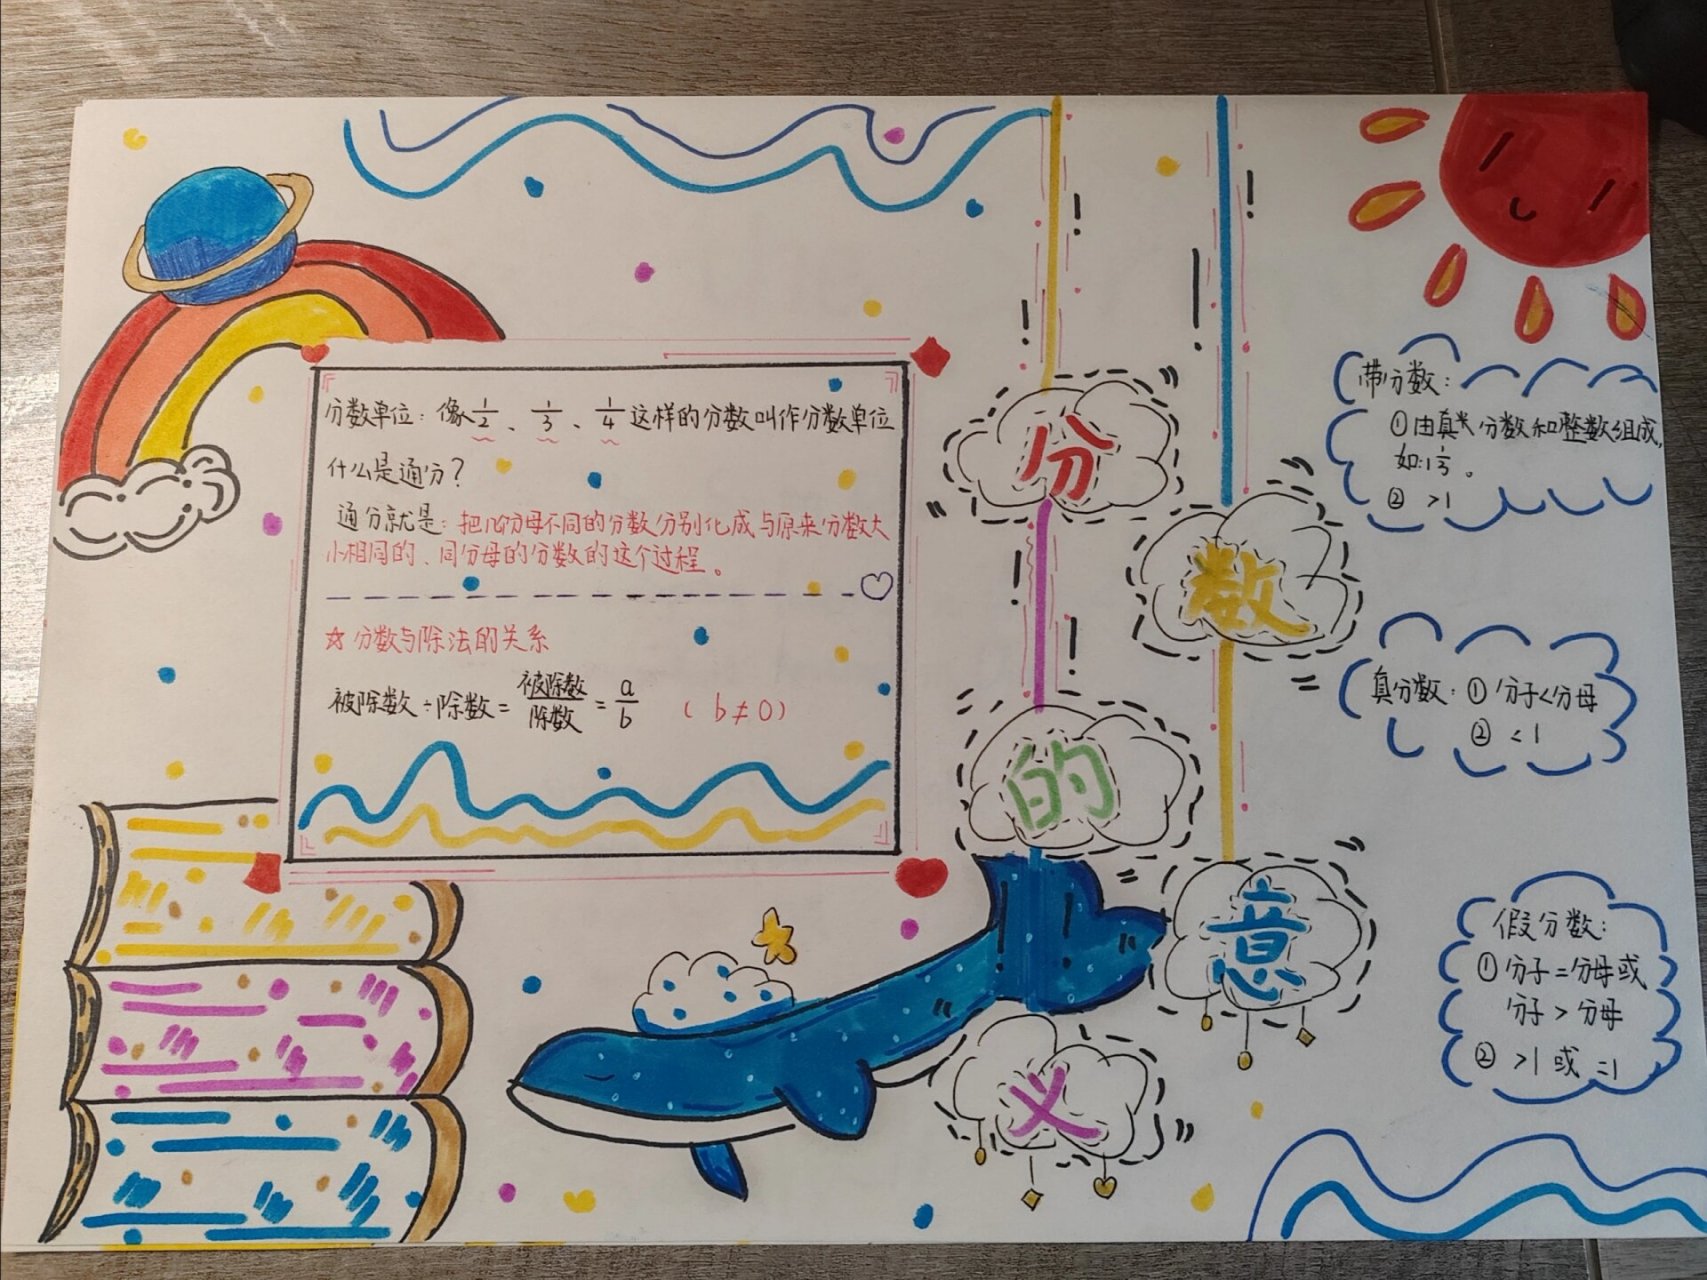 分数的意义
分数单位：像1/2、1/3、1/4这样的分数叫作分数单位
什么是通分？
通分就是：把几个分母不同的分数分别化成与原来分数大
小相同的、同分母的分数的这个过程。
☆分数与除法的关系
被除数÷除数=被除数/除数=a/b （b≠0）
带分数：
①由真分数和整数组成，
如：1 1/3。
② >1
真分数：①分子<分母
② <1
假分数：
①分子=分母或
分子>分母
② >1或=1